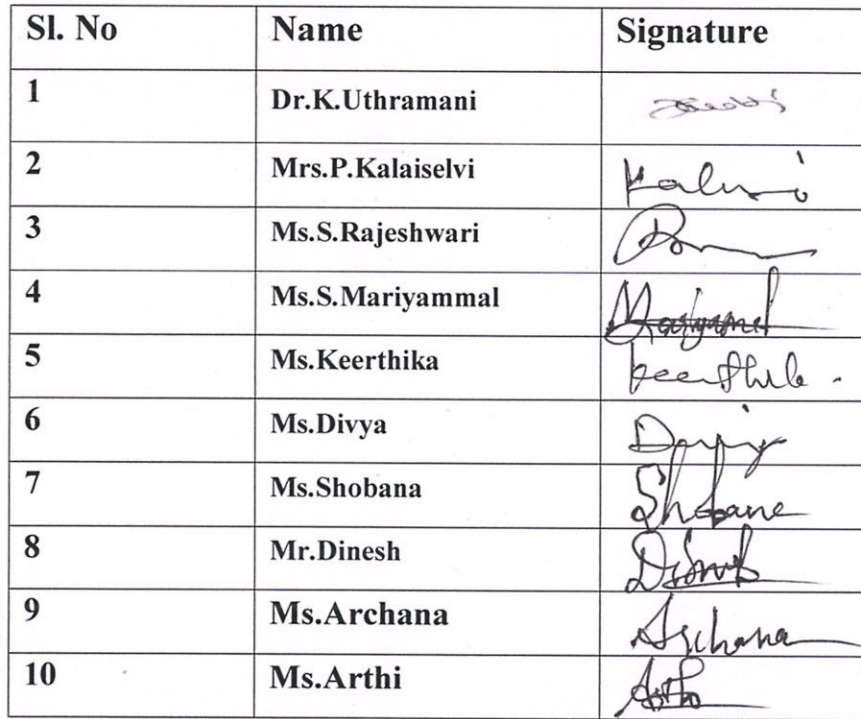 Sl. No Name Signature
1 Dr.K.Uthramani
2 Mrs.P.Kalaiselvi
3 Ms.S.Rajeshwari
4 Ms.S.Mariyammal Mariyammal
5 Ms.Keerthika Keerthika
6 Ms.Divya
7 Ms.Shobana Shobana
8 Mr.Dinesh Dinesh
9 Ms.Archana Archana
10 Ms.Arthi